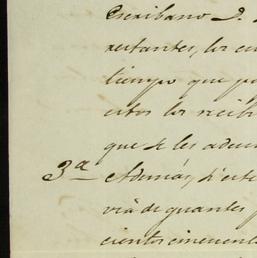 Escribano D.
restantes, los cu
tiempo que pa
estos los recib
que se les adeu
3ª Además, d'este
viá de guantes
cientos cincuenta